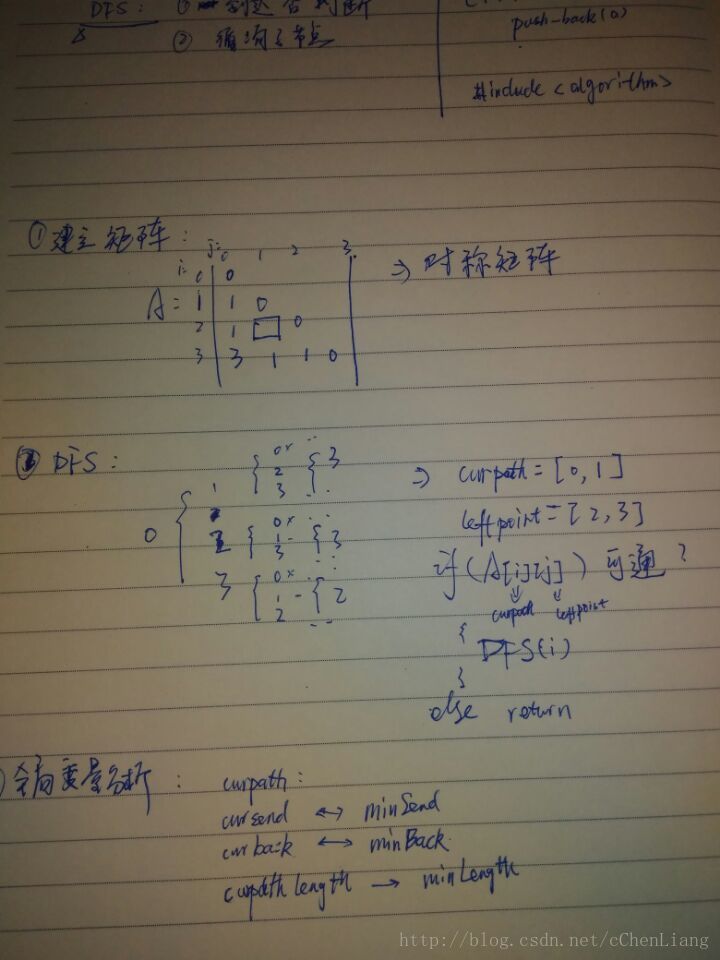 DFS: ① 到达否判断
② 循词子节点
push-back(0)
#include <algorithm>
① 建立矩阵:
j=0 1 2 3
i=0 0
A= 1 1 0
2 1 0
3 3 1 1 0
⇒ 对称矩阵
DFS:
0
1 { 0× 2 3 { 3
2 { 0× 1 3 { 3
3 { 0× 1 2 { 2
⇒ curpath = [0,1]
leftpoint = [2,3]
if (A[i][j]) 可通?
curpath leftpoint
{
DFS(i)
}
else return
全局变量分析:
curpath:
cursend ↔ minSend
curback ↔ minBack
curpathlength → minLength
http://blog.csdn.net/cChenLiang